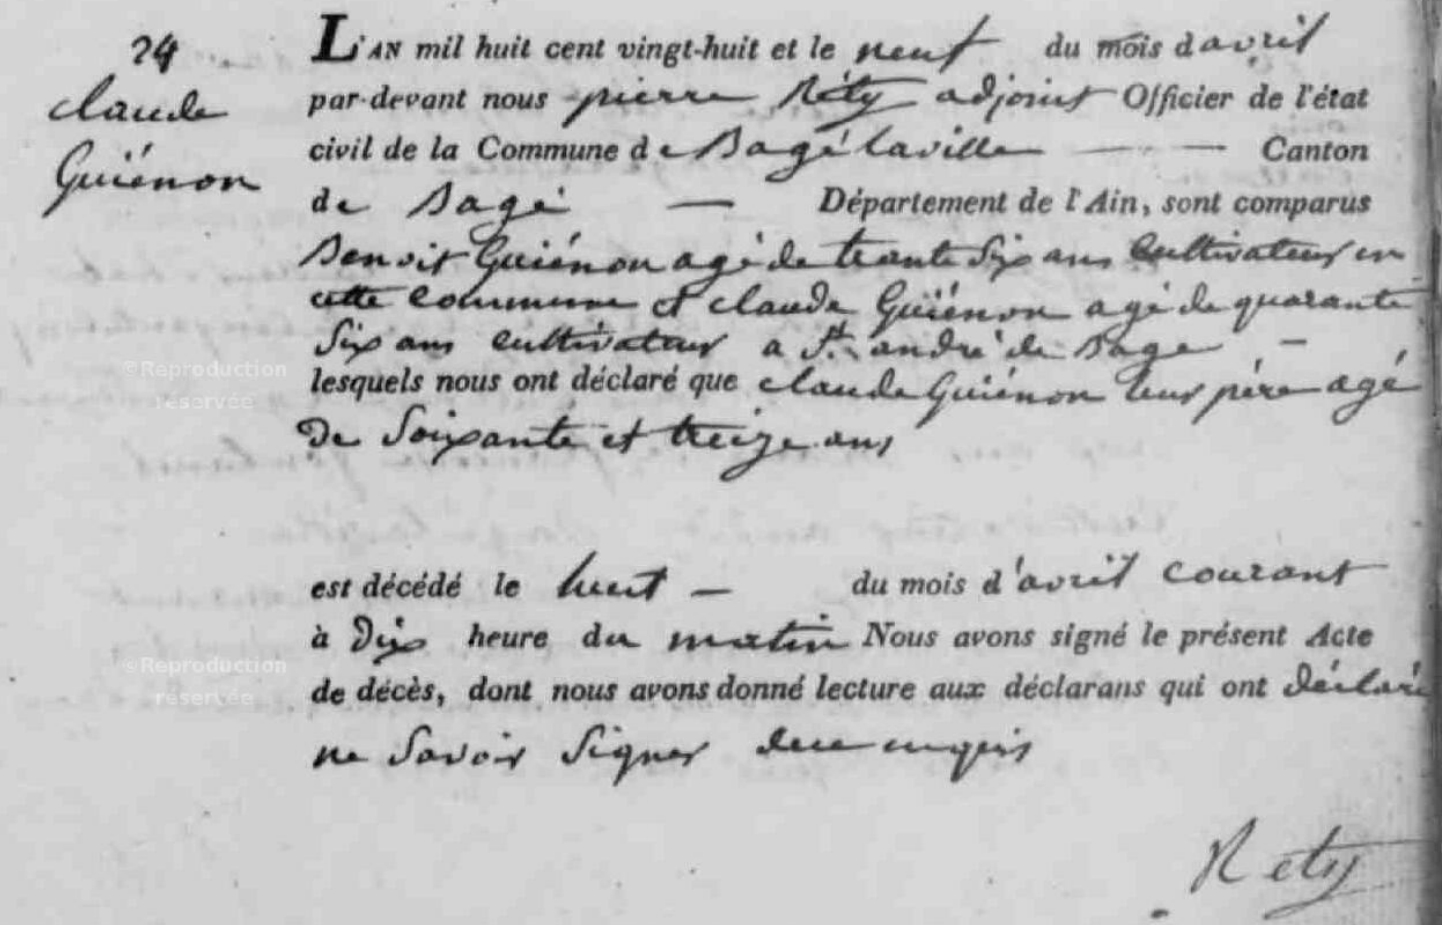 24
claude
Guiénon
L'AN mil huit cent vingt-huit et le neuf du mois d avril
par-devant nous pierre Réty adjoint Officier de l'état
civil de la Commune de Bagé laville — Canton
de Bagé — Département de l'Ain, sont comparus
Benoit Guiénon agé de trante Six ans Cultivateur en
cette commune et claude Guiénon agé de quarante
Six ans cultivateur a St. andré de Bagé —
lesquels nous ont déclaré que claude Guiénon leur père agé
De Soixante et treize ans
est décédé le huit — du mois d'avril courant
à Dix heure du matin Nous avons signé le présent Acte
de décès, dont nous avons donné lecture aux déclarans qui ont déclaré
ne Savoir Signer de ce enquis
Rety
©Reproduction
réservée
©Reproduction
réservée